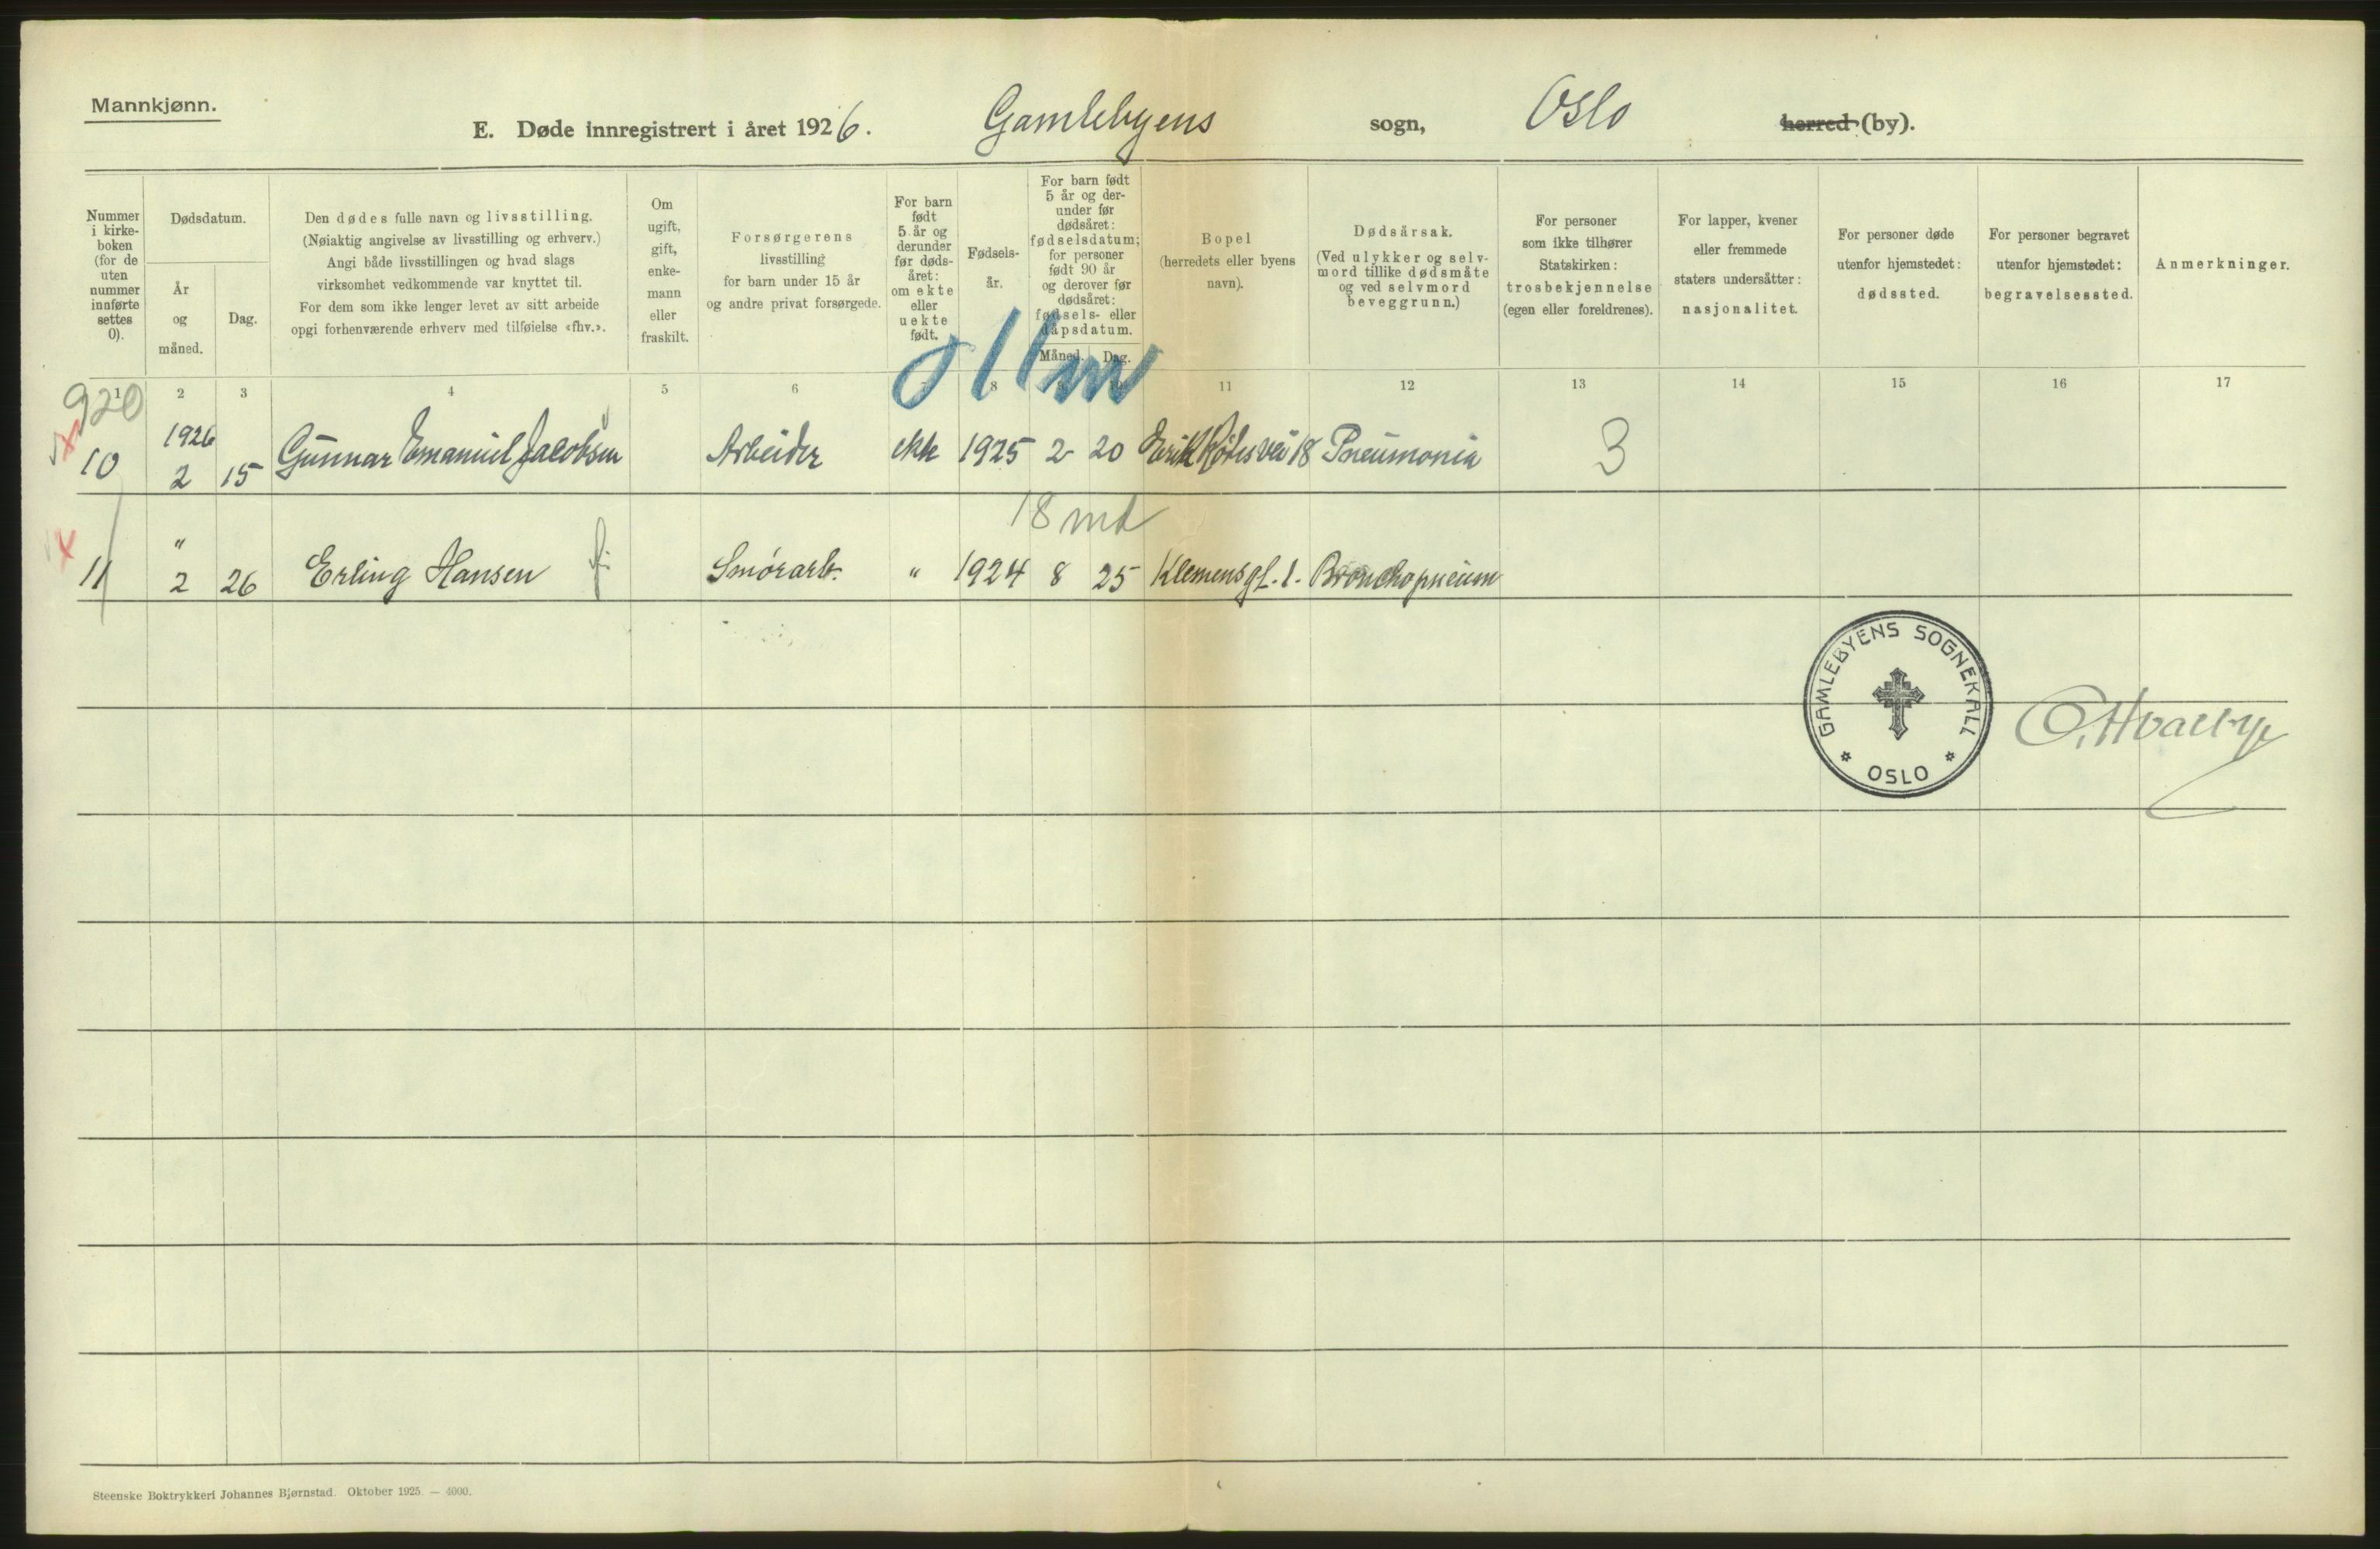 Mannkjønn.
E. Døde innregistrert i året 1926. Gamlebyens sogn, Oslo herred (by).
Nummer i kirke- boken (for de uten nummer innførte settes 0).
Dødsdatum.
År og måned.
Dag.
Den dødes fulle navn og livsstilling.
(Nøiaktig angivelse av livsstilling og erhverv.)
Angi både livsstillingen og hvad slags
virksomhet vedkommende var knyttet til.
For dem som ikke lenger levet av sitt arbeide
opgi forhenværende erhverv med tilføielse «fhv.».
Om ugift, gift, enke- mann eller fraskilt.
Forsørgerens
livsstilling
for barn under 15 år
og andre privat forsørgede.
For barn født 5 år og derunder før døds- året: om ekte eller uekte født.
Fødsels- år.
For barn født 5 år og der- under før dødsåret: fødselsdatum; for personer født 90 år og derover før dødsåret: fødsels- eller dåpsdatum.
Måned. Dag.
Bopel
(herredets eller byens
navn).
Dødsårsak.
(Ved ulykker og selv-
mord tillike dødsmåte
og ved selvmord
beveggrunn.)
For personer
som ikke tilhører
Statskirken:
trosbekjennelse
(egen eller foreldrenes).
For lapper, kvener
eller fremmede
staters undersåtter:
nasjonalitet.
For personer døde
utenfor hjemstedet:
dødssted.
For personer begravet
utenfor hjemstedet:
begravelsessted.
Anmerkninger.
1 2 3 4 5 6 7 8 9 10 11 12 13 14 15 16 17
920
11 m
10 1926 2 15 Gunnar Emanuel Jacobsen Arbeider ekte 1925 2 20 Erik Rødes vei 18 Pneumonia 3
18 md
11 " 2 26 Erling Hansen Smørarb. " 1924 8 25 Klemensgt. 1. Bronchopneum
GAMLEBYENS SOGNEKALL
* OSLO *
Steenske Boktrykkeri Johannes Bjørnstad. Oktober 1925. — 4000.